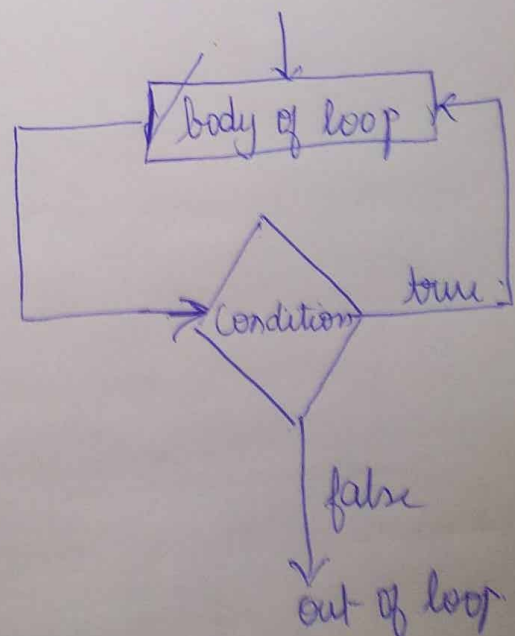 body of loop
Condition
true
false
out of loop